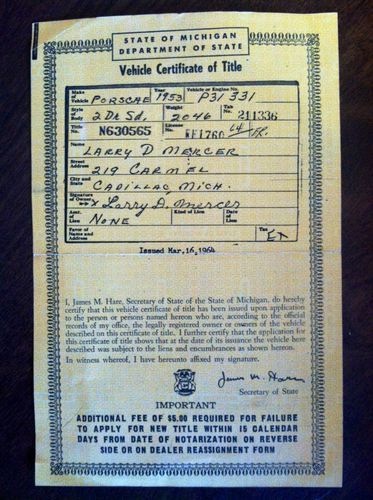 STATE OF MICHIGAN
DEPARTMENT OF STATE
Vehicle Certificate of Title
Make of Vehicle PORSCHE Year 1953 Vehicle or Engine No. P31331
Style of Body 2 Dr Sd, Weight 2046 Tab No. 211336
Title No. N630565 License No. 64
LARRY D MERCER
Street Address 219 CARMEL
City and State CADILLAC MICH.
Signature of Owner Larry D. Mercer
Amt. of Lien NONE Kind of Lien Date of Lien
Favor of Name and Address Tax EX
Issued Mar. 16, 1964
I, James M. Hare, Secretary of State of the State of Michigan, do hereby
certify that this certificate of title has been issued upon application
to the person or persons named hereon who are, according to the official
records of my office, the legally registered owner or owners of the vehicle
described on this certificate of title. I further certify that the application for
this certificate of title shows that at the date of its issuance the vehicle here
described was subject to the liens and encumbrances as shown hereon.
In witness whereof, I have hereunto affixed my signature.
James M. Hare
Secretary of State
IMPORTANT
ADDITIONAL FEE OF $5.00 REQUIRED FOR FAILURE
TO APPLY FOR NEW TITLE WITHIN 15 CALENDAR
DAYS FROM DATE OF NOTARIZATION ON REVERSE
SIDE OR ON DEALER REASSIGNMENT FORM